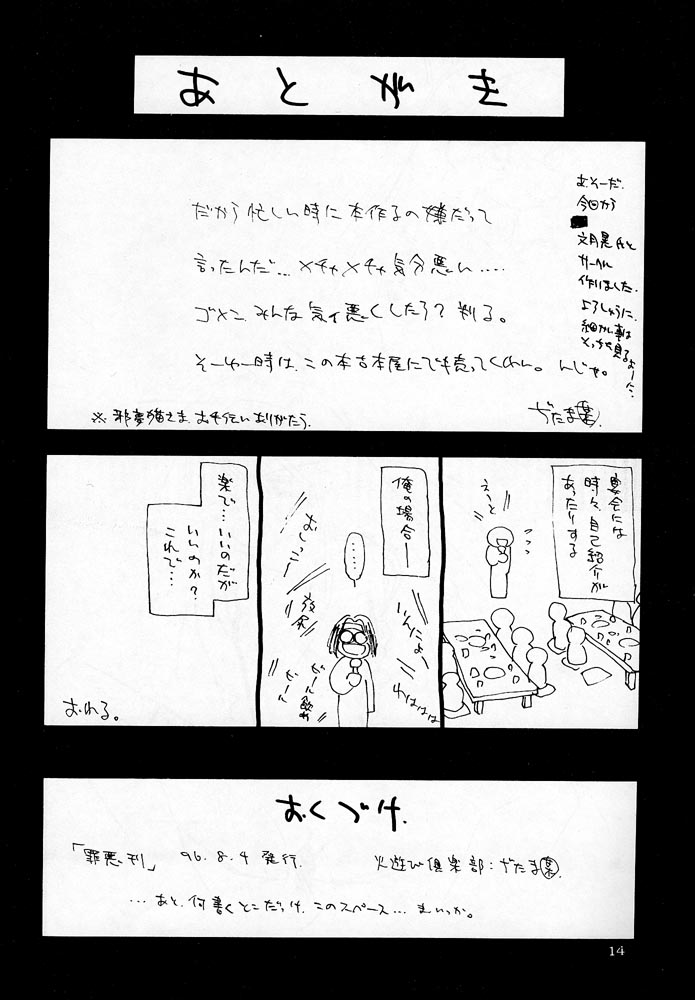 あとがき
だから忙しい時に本作るの嫌だって
言ったんだ…メチャメチャ気分悪い‥‥
ゴメン、みんな気ィ悪くしたろ?判る。
そーゆー時は、この本古本屋にでも売ってくれい。んじゃ。
※邪夢猫さま、お手伝いありがとう。
ぢたま(某)
あ、そーだ。
今回から
文月晃氏と
サークル
作りました。
よろしゅうに。
細かい事は
宴会には
時々、自己紹介が
あったりする
えーと
俺の場合―
……
いんにょー
わはははは
おしっこー
放尿
ビール
ビール飲め
楽で…いいのだが
いいのか?
これで…
おわる。
おくづけ
「罪悪刊」 96.8.4 発行.
火遊び倶楽部:ぢたま(某).
…あと、何書くとこだっけ、このスペース…まいっか。
14